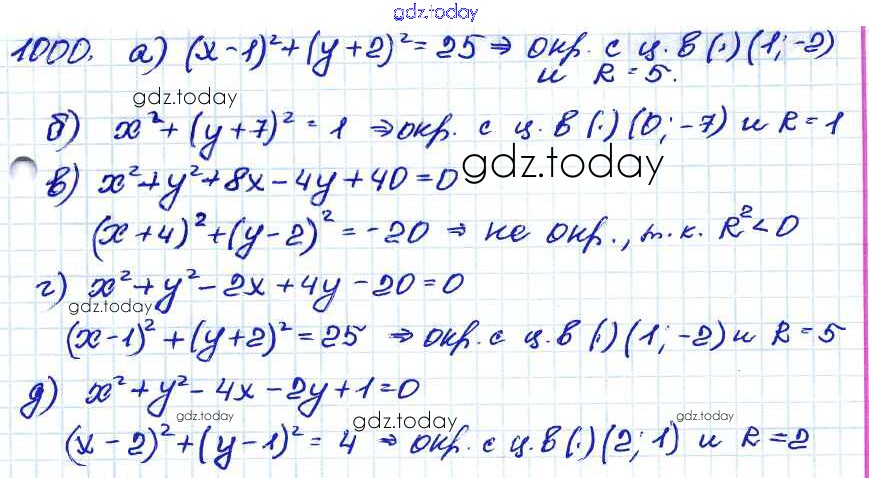 gdz.today
1000. а) (x-1)²+(y+2)²=25 ⇒ окр. с ц. в (·)(1;-2)
и R=5.
gdz.today
б) x²+(y+7)²=1 ⇒ окр. с ц. в (·)(0;-7) и R=1
gdz.today
в) x²+y²+8x-4y+40=0
(x+4)²+(y-2)²=-20 ⇒ не окр., т.к. R²<0
г) x²+y²-2x+4y-20=0
gdz.today
(x-1)²+(y+2)²=25 ⇒ окр. с ц. в (·)(1;-2) и R=5
д) x²+y²-4x-2y+1=0
gdz.today gdz.today gdz.today
(x-2)²+(y-1)²=4 ⇒ окр. с ц. в (·)(2;1) и R=2